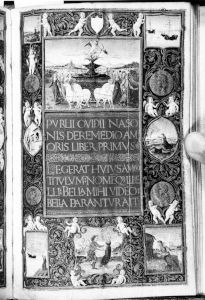 PVBLII OVIDII NASO
NIS DE REMEDIO AM
ORIS LIBER PRIMVS
LEGERAT HVIVS AMO
TITVLVM NOMEQ LIB
ELLI BELLA MIHI VIDEO
BELLA PARANTVR AIT